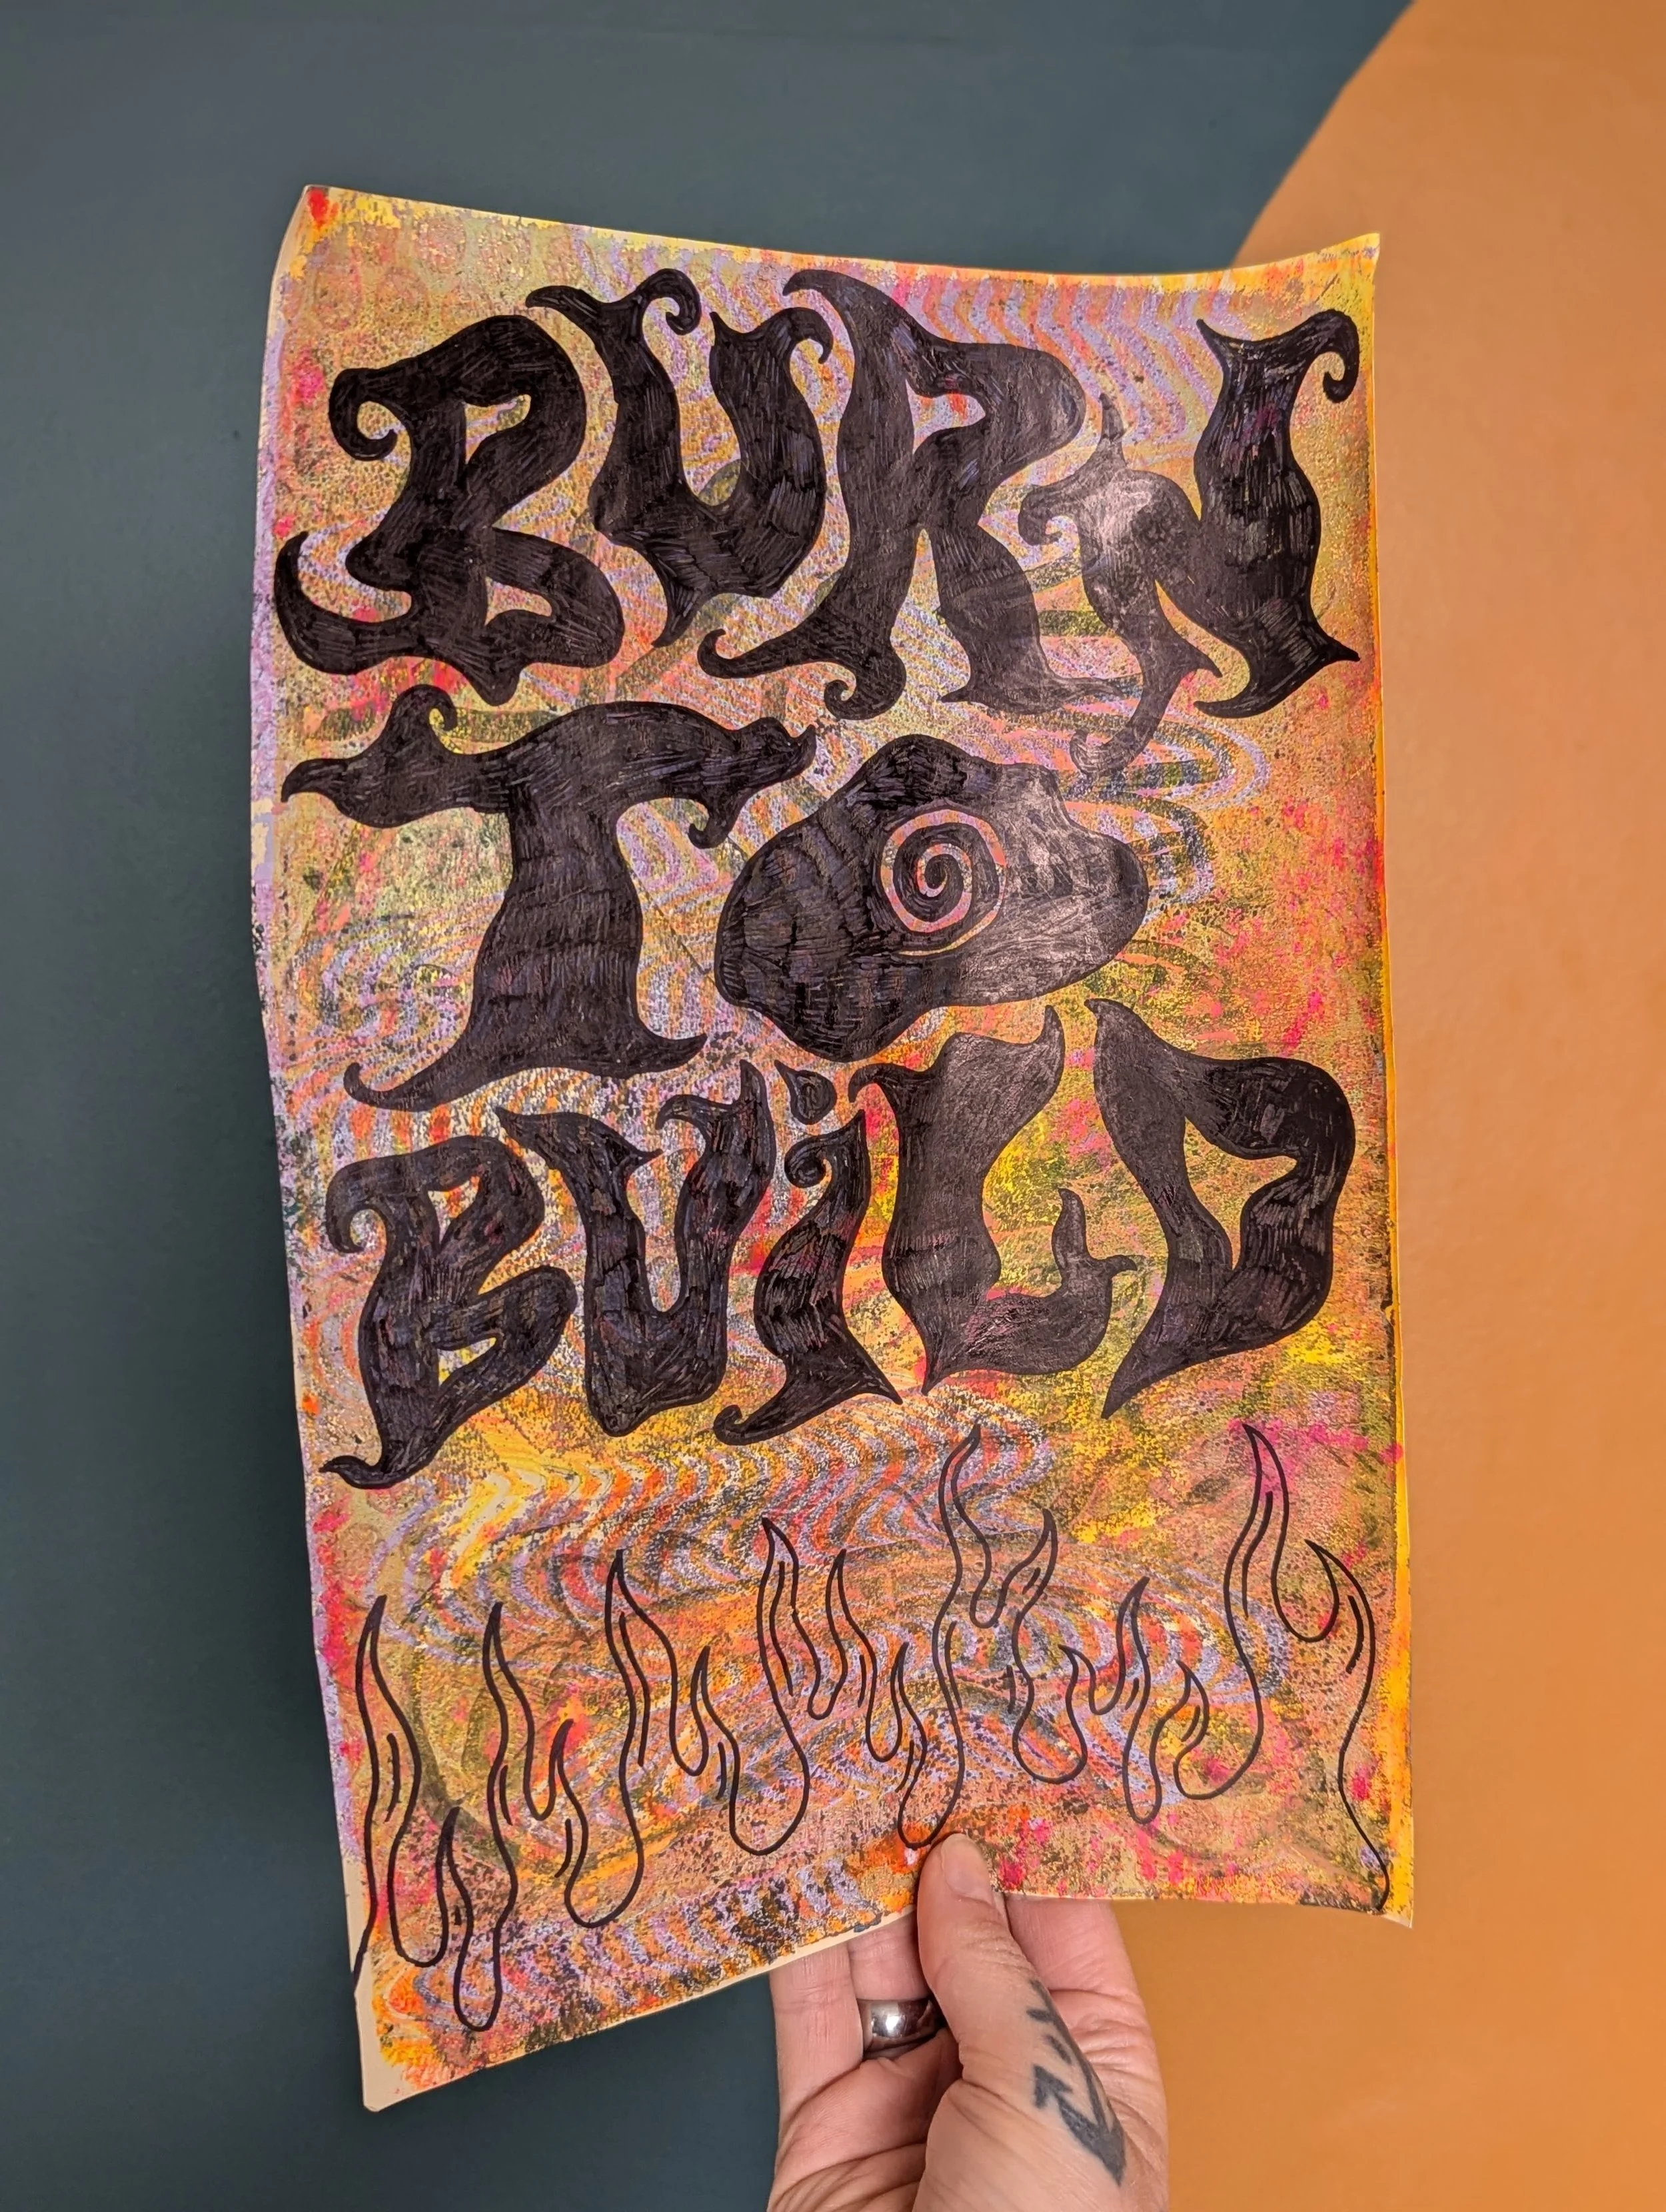 BURN
TO
BUiLD